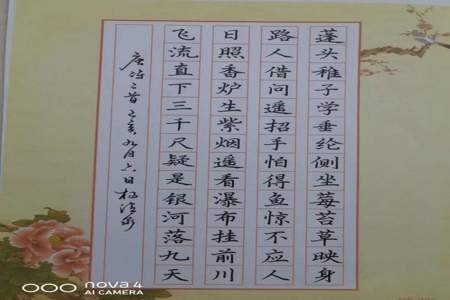 蓬头稚子学垂纶侧坐莓苔草映身
路人借问遥招手怕得鱼惊不应人
日照香炉生紫烟遥看瀑布挂前川
飞流直下三千尺疑是银河落九天
唐诗二首己亥九月六日
nova 4
AI CAMERA